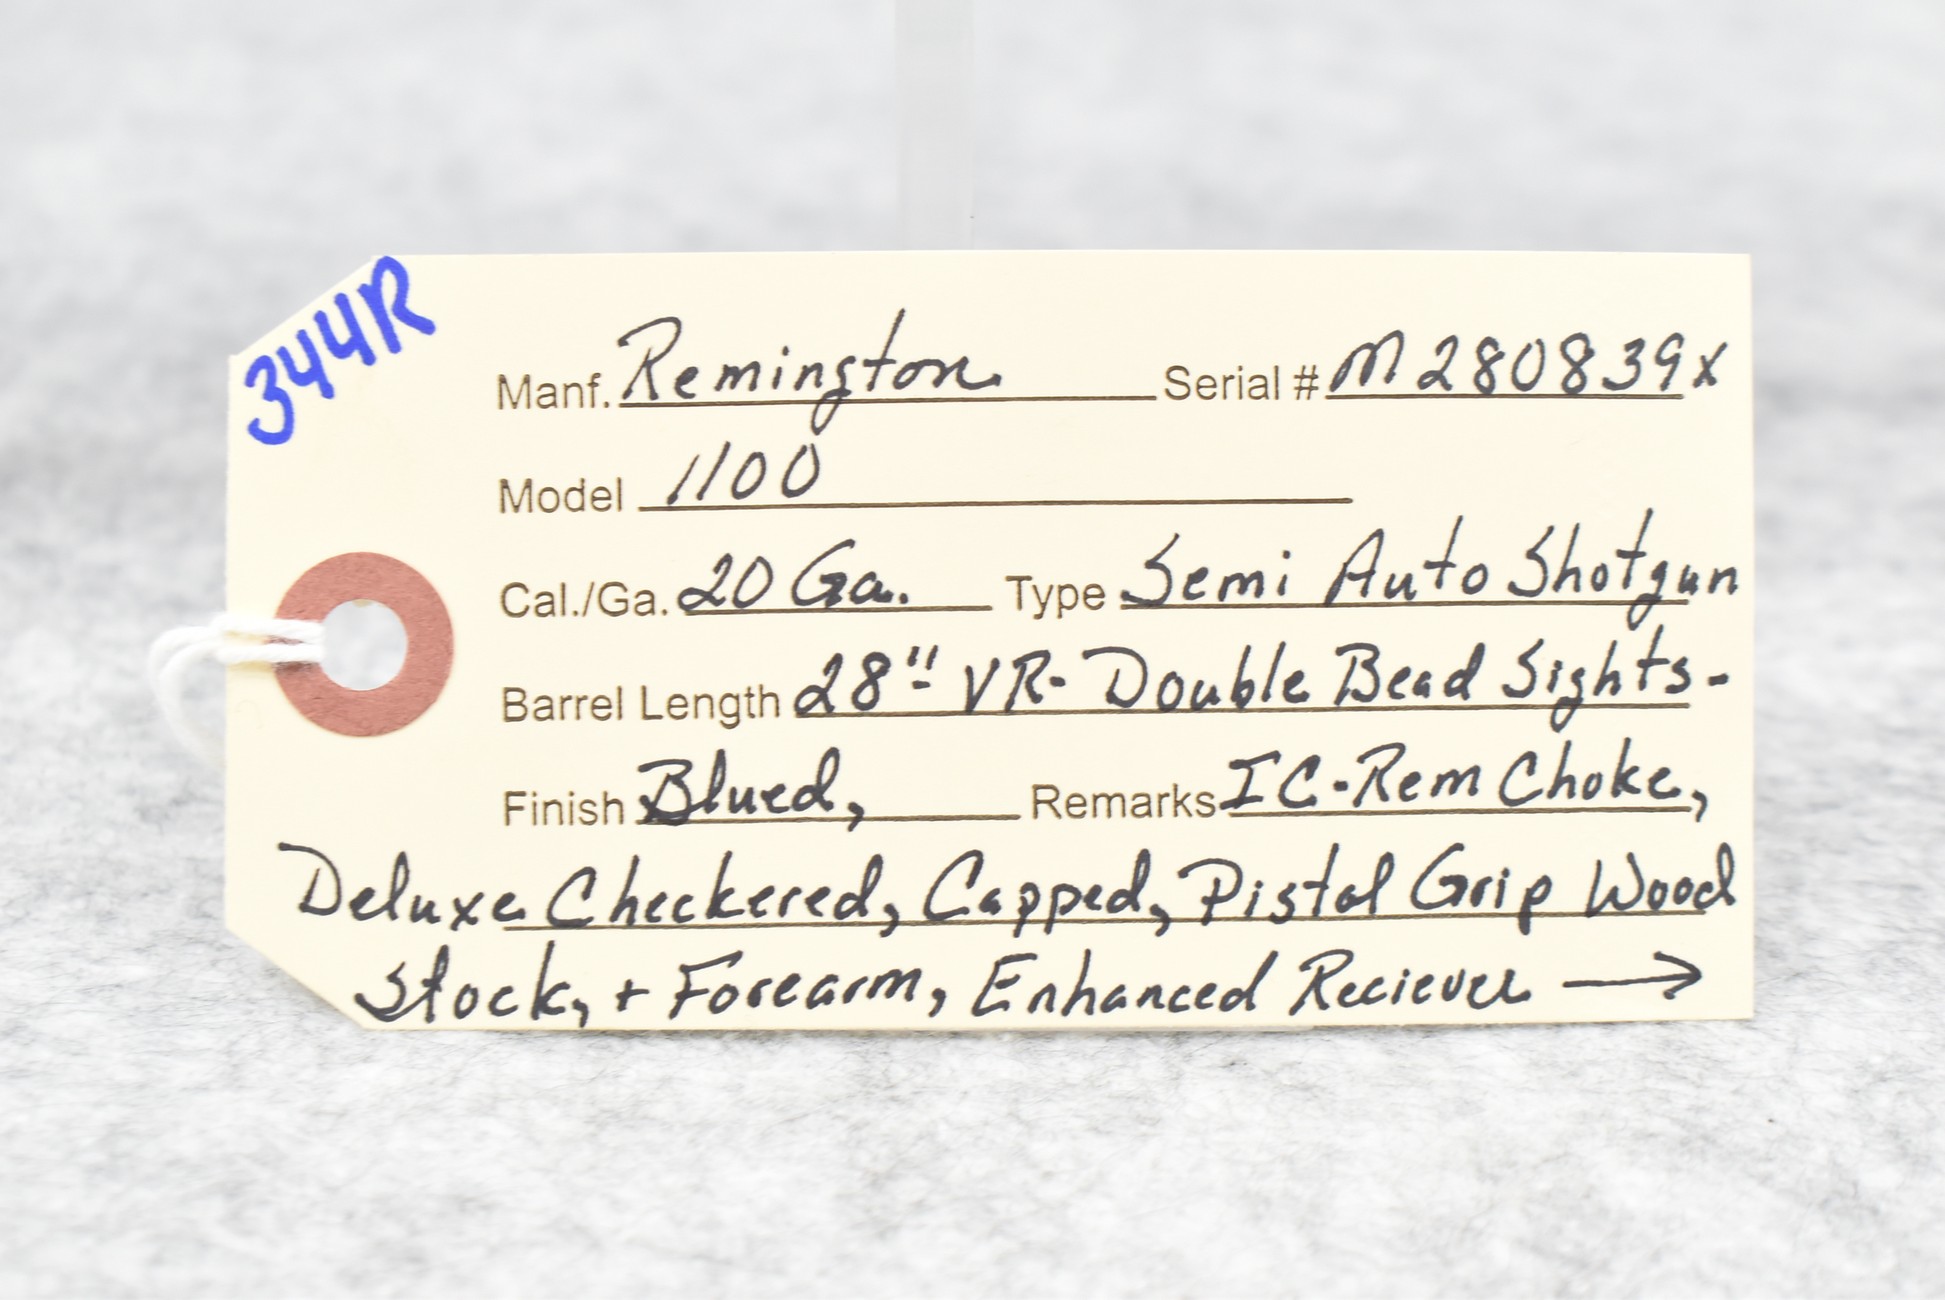 344R
Manf. Remington Serial # M280839x
Model 1100
Cal./Ga. 20 Ga. Type Semi Auto Shotgun
Barrel Length 28" VR- Double Bead Sights-
Finish Blued, Remarks IC-Rem Choke,
Deluxe Checkered, Capped, Pistol Grip Wood
Stock, + Forearm, Enhanced Reciever →